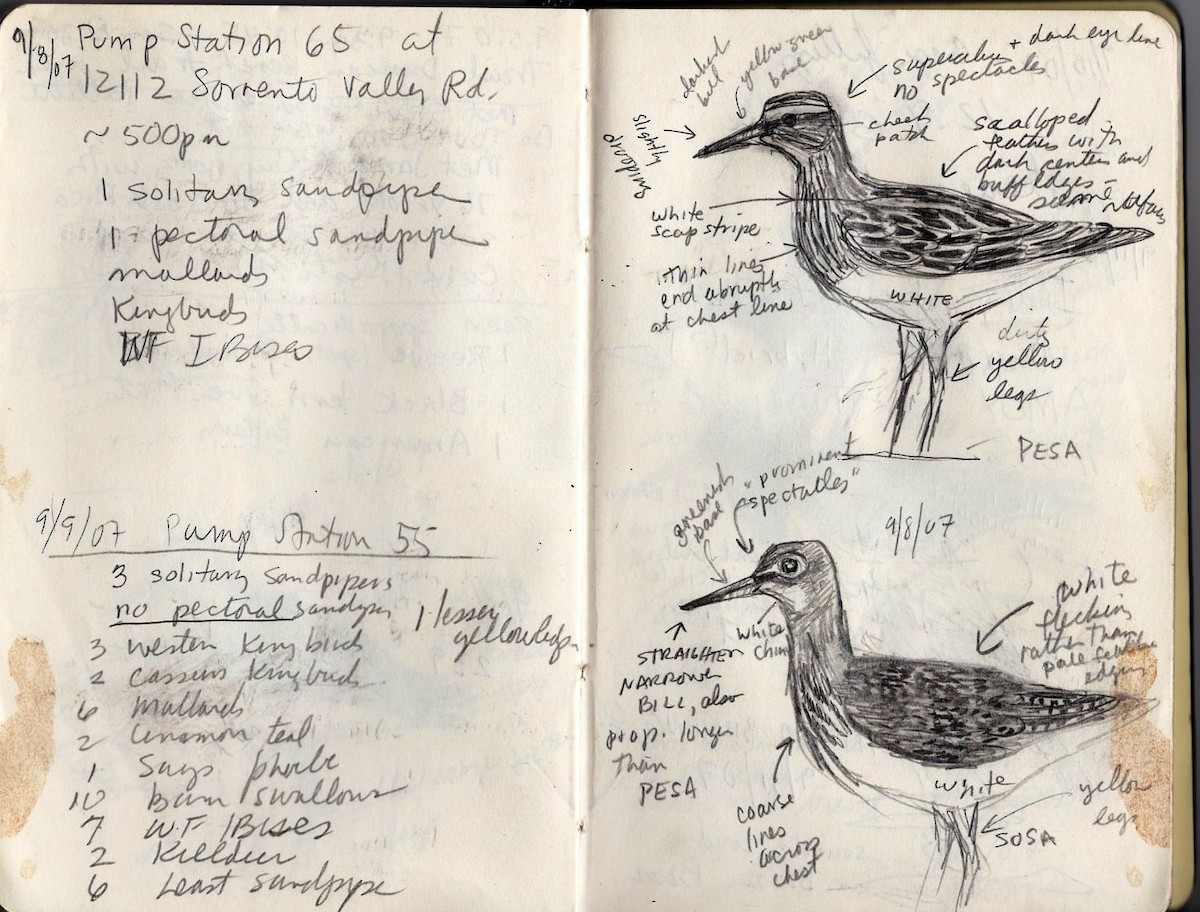 9/8/07 Pump Station 65 at
12112 Sorrento Valley Rd.
~ 500pm
1 solitary sandpiper
1 - pectoral sandpiper
mallards
Kingbirds
WF IBISES
9/9/07 Pump Station 55
3 solitary sandpipers
no pectoral sandpiper 1 lesser
yellowlegs
3 western Kingbirds
2 cassins Kingbirds
6 Mallards
2 cinnamon teal
1 Says phoebe
10 barn swallows
7 WF IBISES
2 Killdeer
6 Least sandpiper
darker
bill
yellow green
base
supercilium + dark eye line
no spectacles
cheek
patch
slightly
scalloped
feathers with
dark centers and
buff edges -
some rufous
white
scap stripe
thin lines
end abruptly
at chest line
WHITE
dirty
yellow
legs
PESA
greenish
base
"prominent
spectacles"
9/8/07
white
chin
STRAIGHTER
NARROWER
BILL, also
prop. longer
than
PESA
white
flecking
rather than
pale feather
edging
coarse
lines
across
chest
white
yellow
legs
SOSA